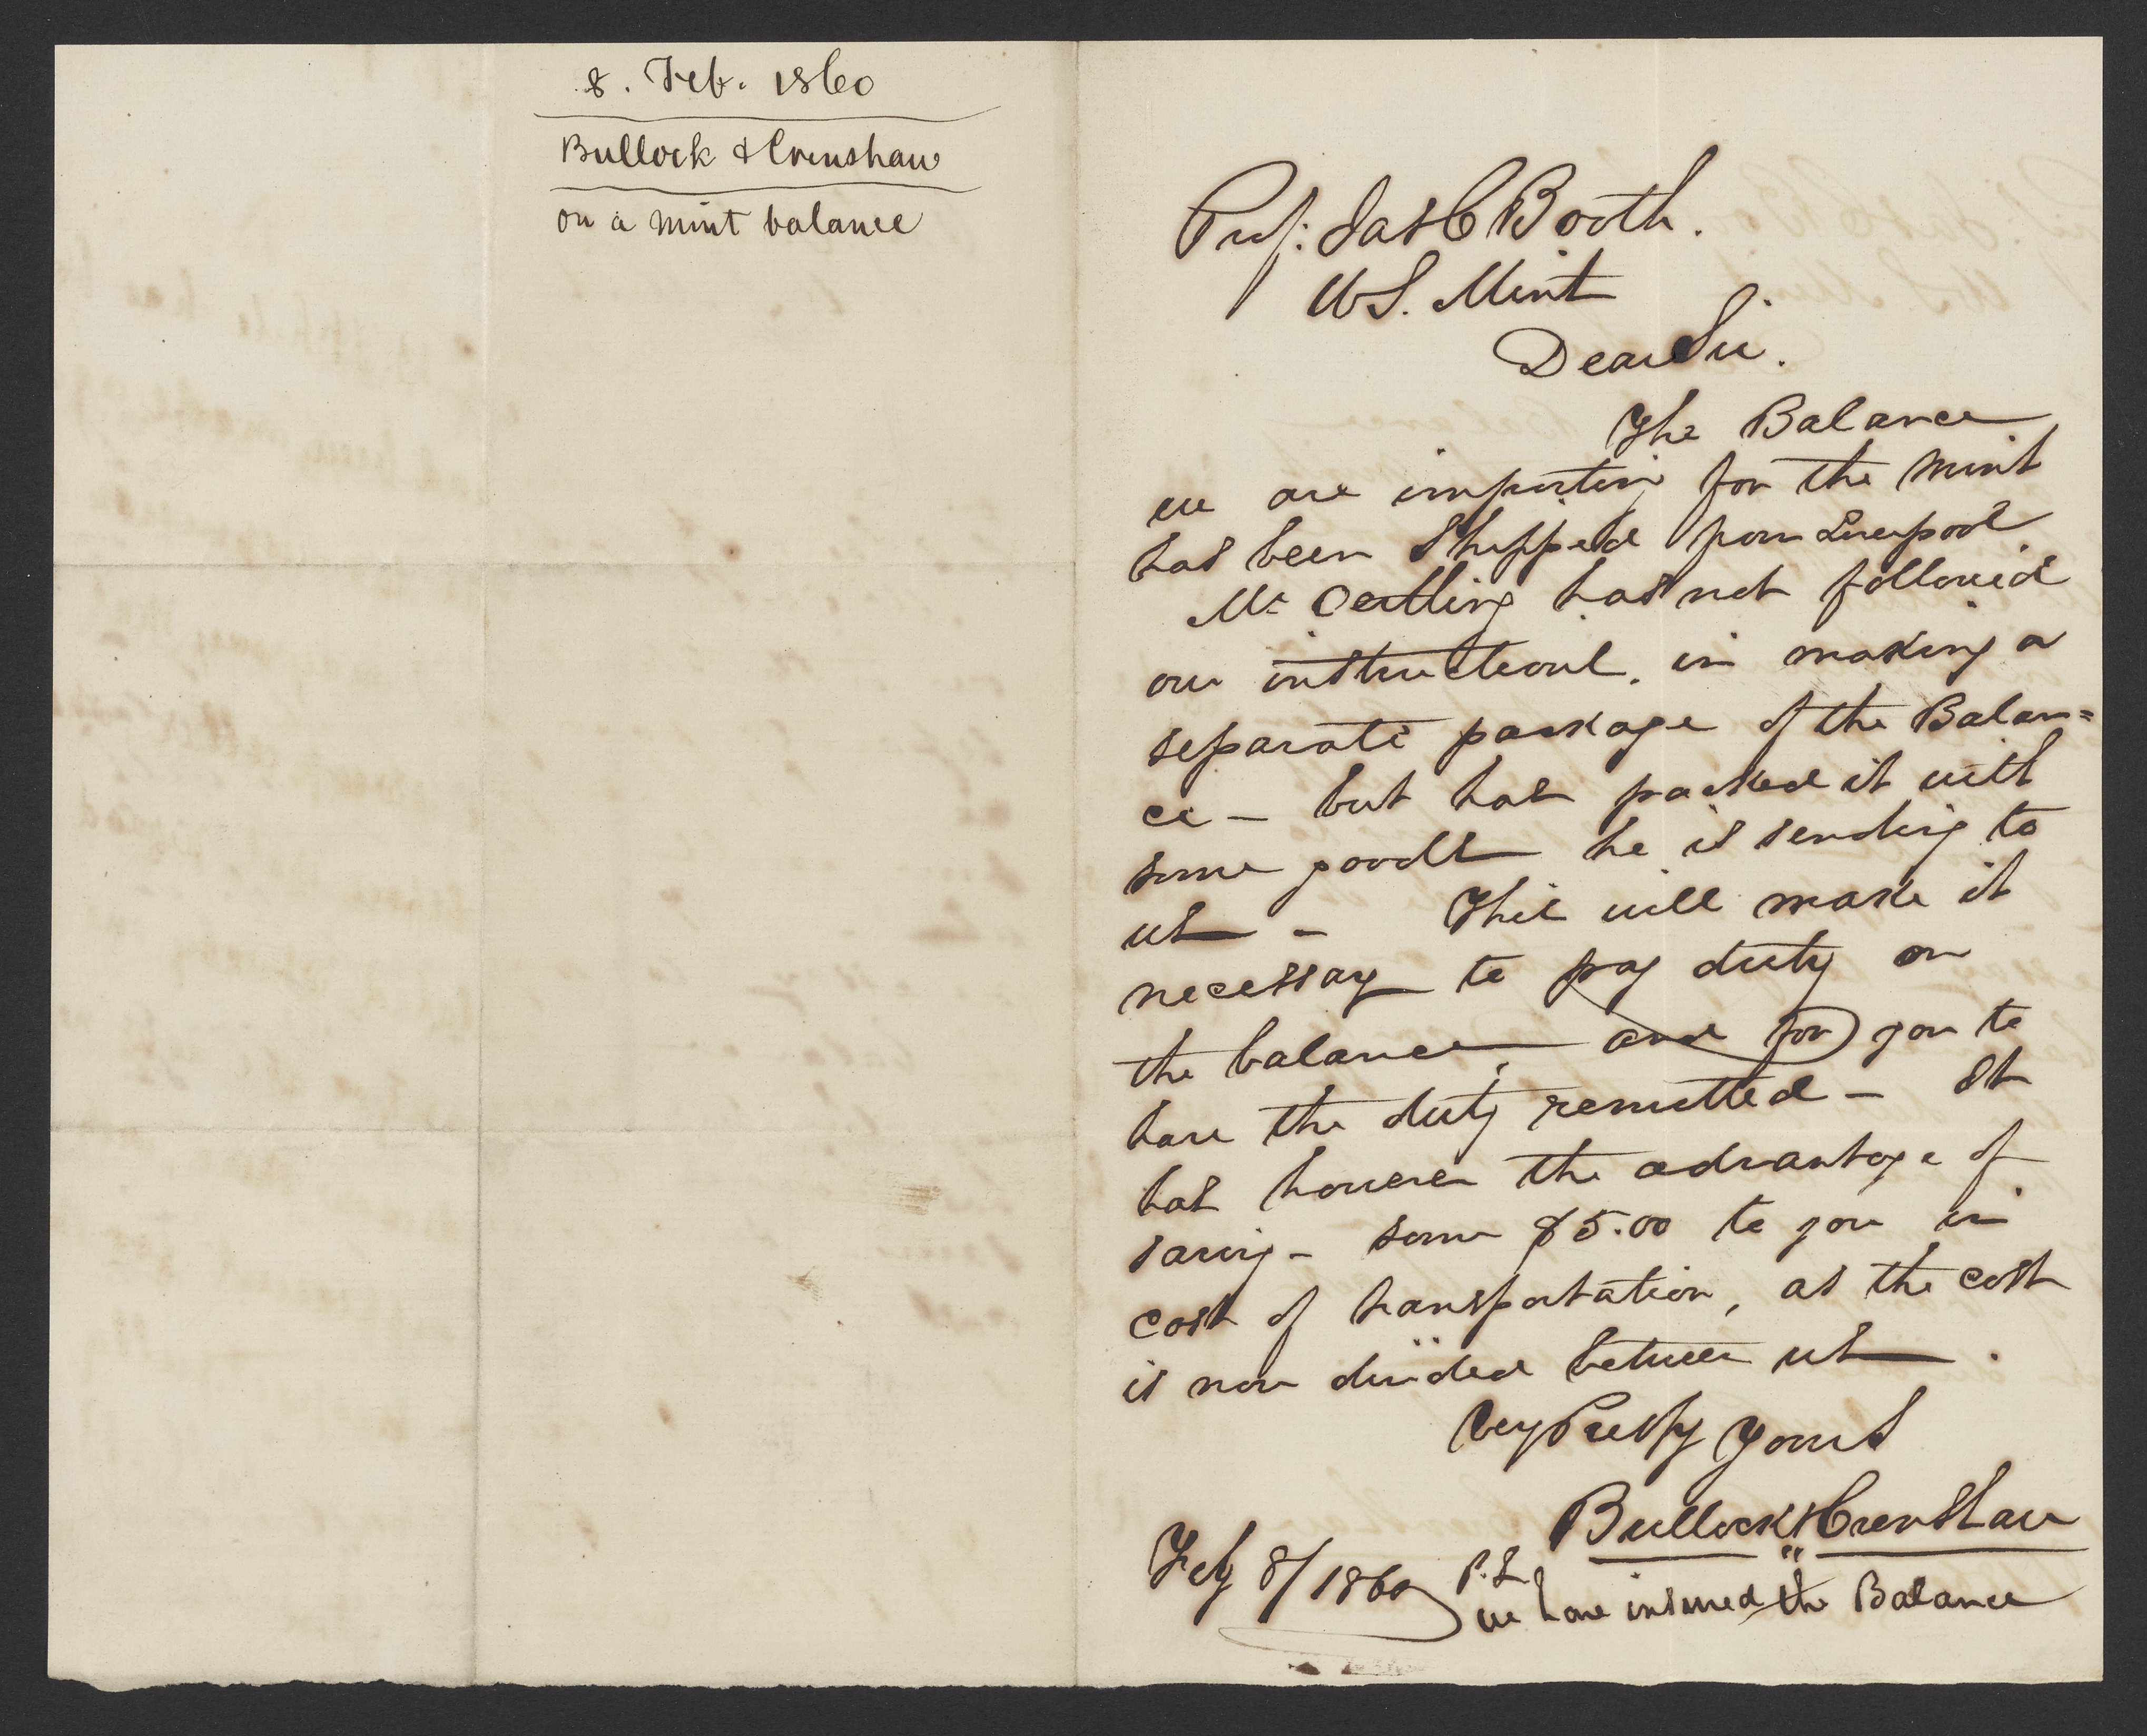 8. Feb. 1860
Bullock & Crenshaw
on a mint balance
Prof: Jas C Booth.
U S. Mint
Dear Sir.
The Balance
we are importing for the Mint
has been Shipped from Liverpool
Mr Oertling has not followed
our instructions. in making a
separate package of the Balan=
ce – but has packed it with
some goods he is sending to
us – This will make it
necessary to pay duty on
the balance, and for you to
have the duty remitted – It
has however the advantage of
saving – some $5.00 to you in
cost of transportation, as the cost
is now divided between us.
Very Resfy Yours
Bullock & Crenshaw
Feby 8/1860
P.S.
we have insured the Balance